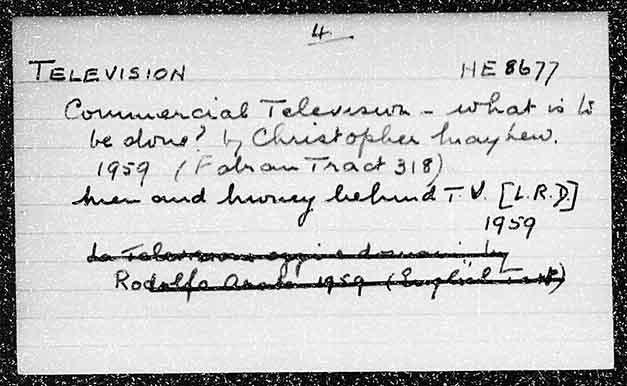 4.
TELEVISION HE 8677
Commercial Television - what is to
be done? by Christopher Mayhew.
1959 (Fabian Tract 318)
Men and Money behind T.V. [L.R.D.]
1959
La Televisione oggi e domani by
Rodolfo 1959 (English Text)